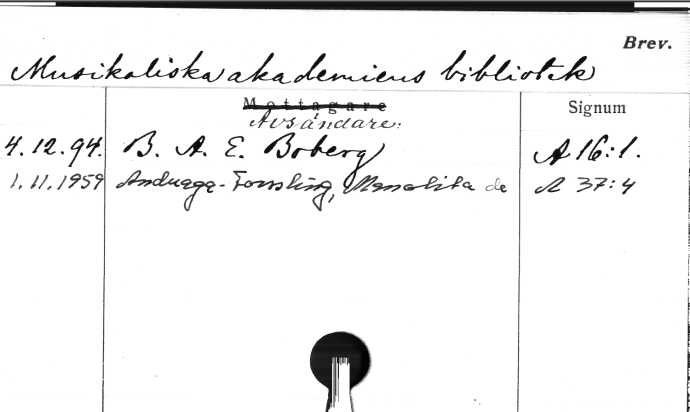 Brev.
Musikaliska akademiens bibliotek
Mottagare Signum
Avsändare:
4.12.94. B. A. E. Boberg A 16:1.
1.11.1959 Anduaga-Forssling, Manolita de A 37:4